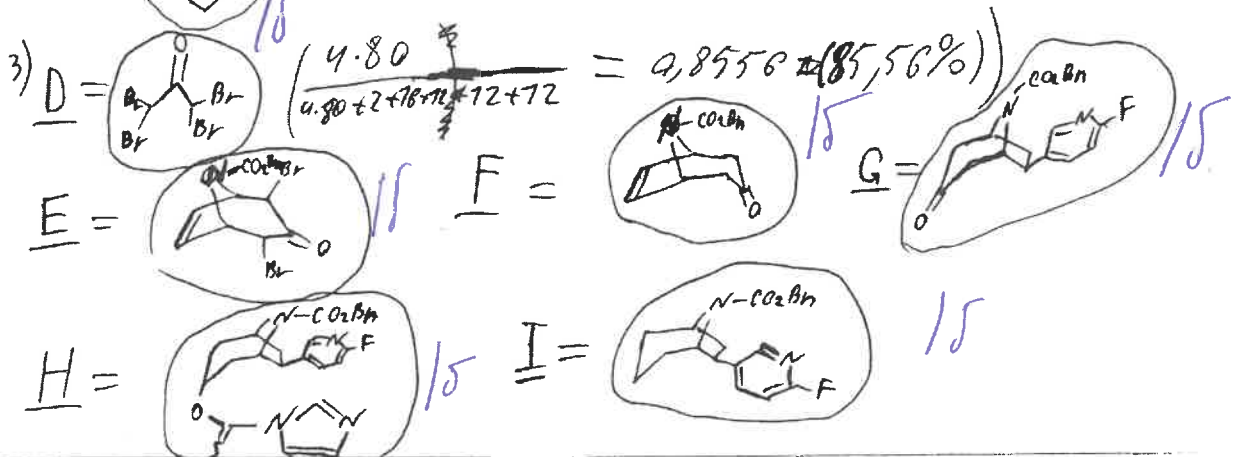 1б
3) D = O Br Br Br Br ( 4·80 / 4·80+2+16+12+12+12 = 0,8556 (85,56%) )
N-CO2Bn O 1б
CO2Bn N N F 1б
E = N-CO2Bn Br O Br 1б F = G = O
H = N-CO2Bn N F O N N 1б
I = N-CO2Bn N F 1б